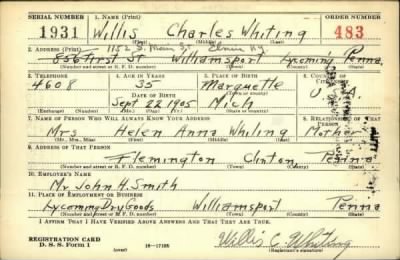 SERIAL NUMBER 1. NAME (Print) ORDER NUMBER
1931 Willis Charles Whiting 483
(First) (Middle) (Last)
2. ADDRESS (Print) 1152 S. Main St. Elmira NY
856 First St Williamsport Lycoming Penna.
(Number and street or R. F. D. number) (Town) (County) (State)
3. TELEPHONE 4. AGE IN YEARS 5. PLACE OF BIRTH 6. COUNTRY OF
4608 35 Marquette U.S.A.
DATE OF BIRTH (Town or county)
Sept 22 1905 Mich
(Exchange) (Number) (Mo.) (Day) (Yr.) (State or country)
7. NAME OF PERSON WHO WILL ALWAYS KNOW YOUR ADDRESS 8. RELATIONSHIP OF THAT PERSON
Mrs Helen Anna Whiting Mother
(Mr., Mrs., Miss) (First) (Middle) (Last)
9. ADDRESS OF THAT PERSON
Flemington Clinton Penna
(Number and street or R. F. D. number) (Town) (County) (State)
10. EMPLOYER'S NAME
Mr John H. Smith
11. PLACE OF EMPLOYMENT OR BUSINESS
Lycoming Dry Goods Williamsport Penna
(Number and street or R. F. D. number) (Town) (County) (State)
I AFFIRM THAT I HAVE VERIFIED ABOVE ANSWERS AND THAT THEY ARE TRUE.
REGISTRATION CARD
D. S. S. Form 1 (over) 16-17105 Willis C. Whiting
(Registrant's signature)